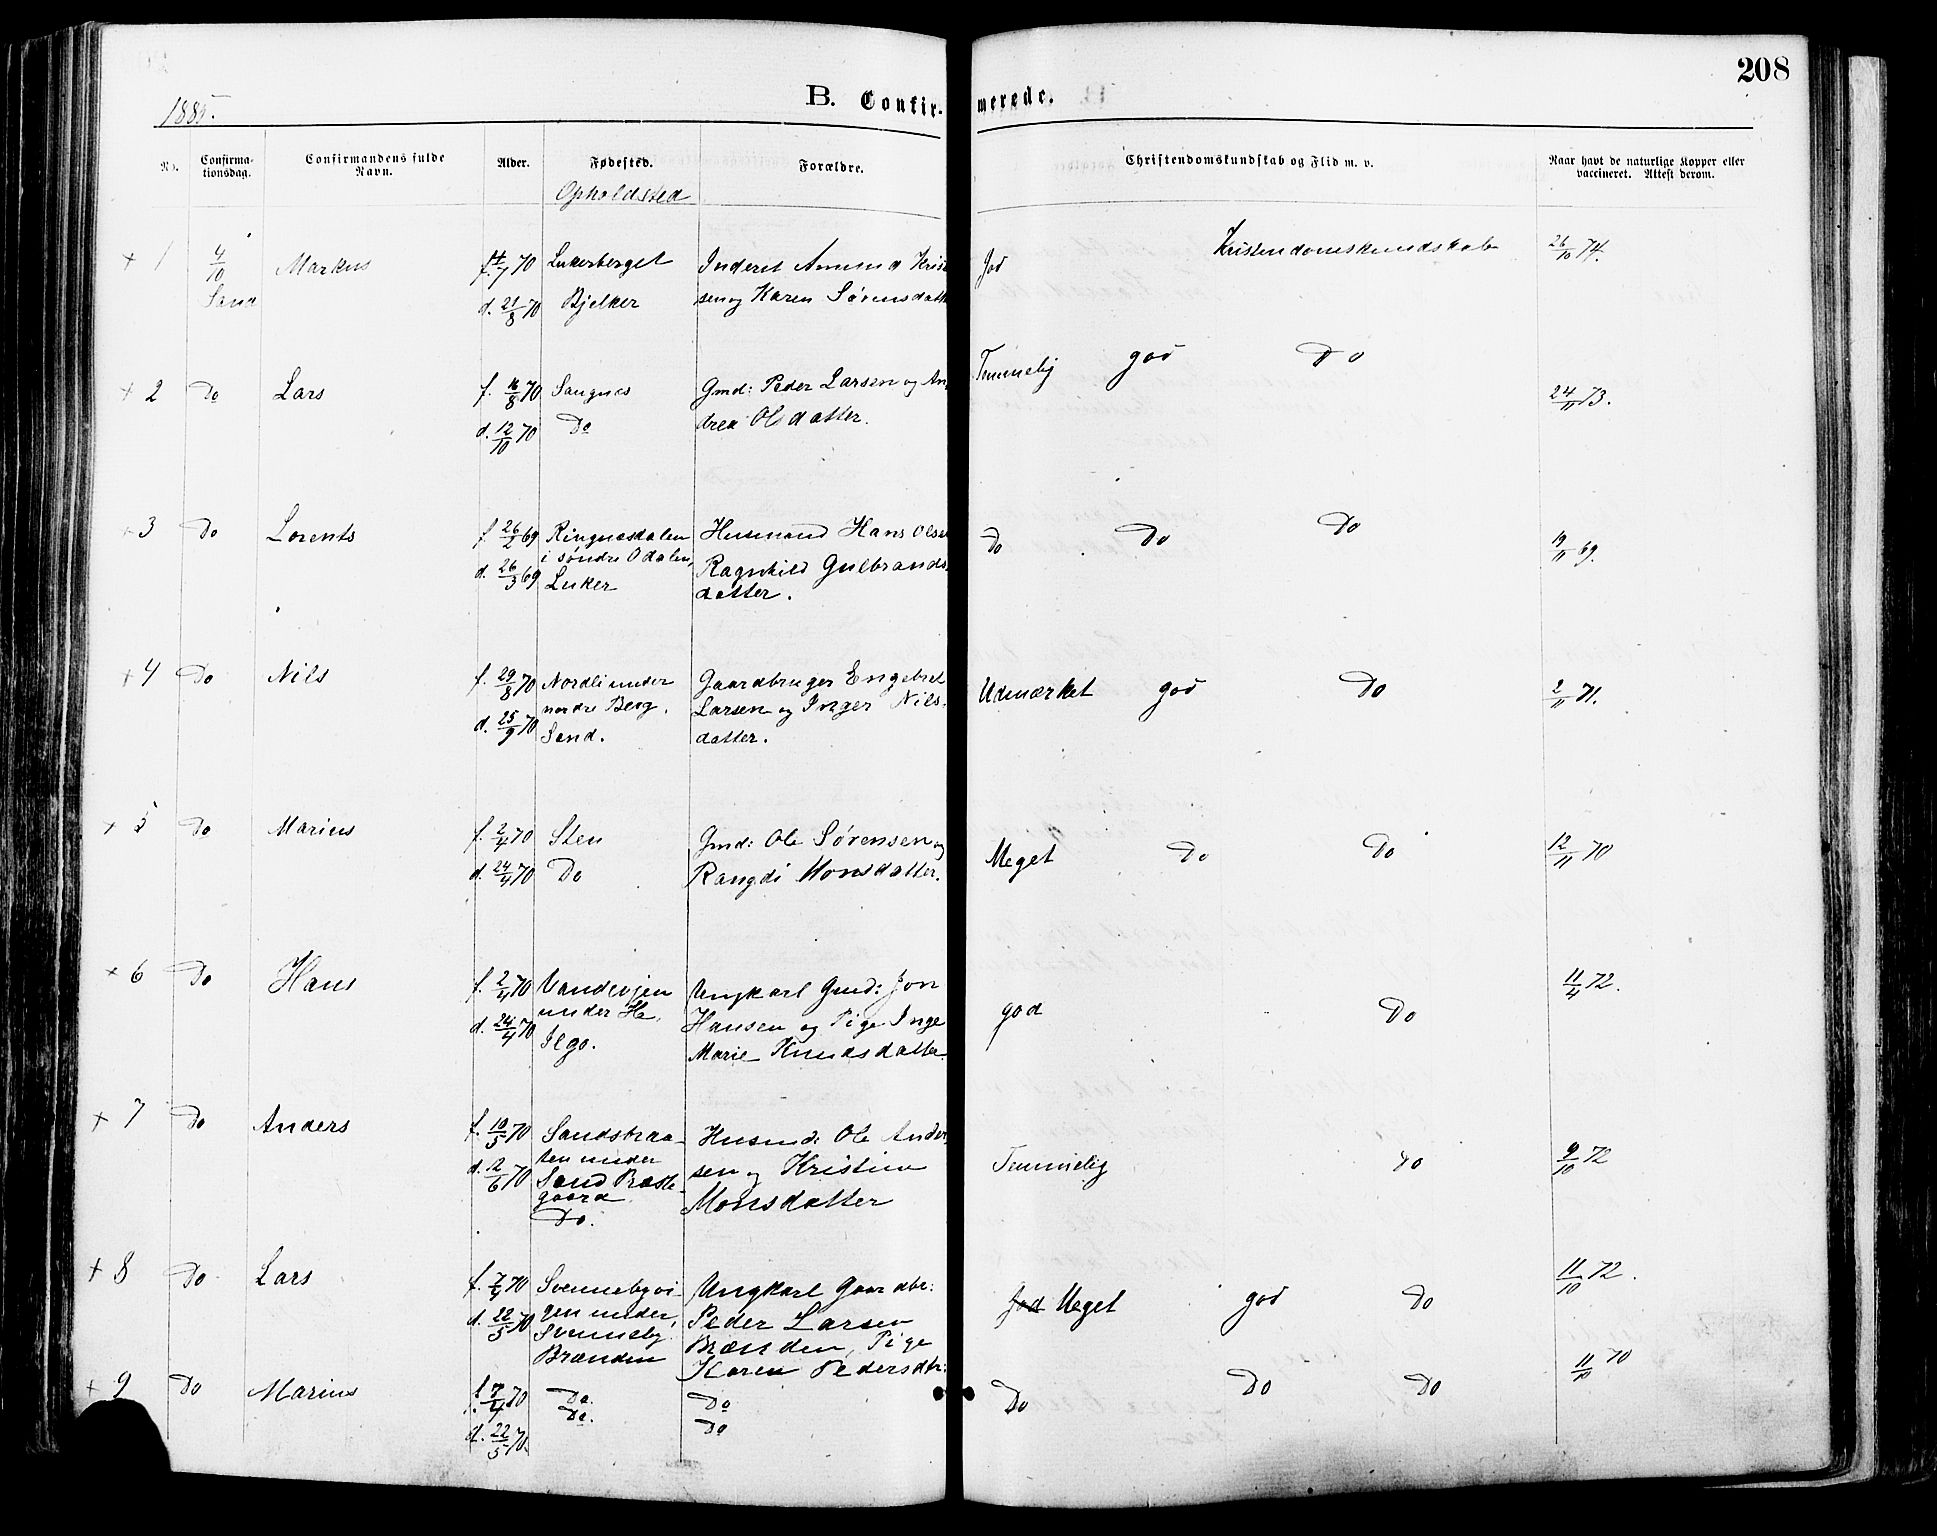 208
1885.
B. Confir- merede.
No.
Confirma-
tionsdag.
Confirmandens fulde
Navn.
Alder.
Fødested.
Opholdsted
Forældre.
Christendomskundskab og Flid m. v.
Naar havt de naturlige Kopper eller
vaccineret. Attest derom.
+ 1 4/10 Markus 70 Lukerberget Inderst Amund Krist God Kristendomskundskab 26/10 74.
Sand d. 21/8 70 Bjelker sen og Karen Sørensdatte
+ 2 Do Lars f. 16/8 70 Sangnes Gmd: Peder Larsen og An Temmelig god Do 24/11 73.
d. 12/10 70 Do drea Olsdatter.
+ 3 Do Lorents f. 26/2 69 Ringnæsdalen Husmand Hans Olsen Do Do Do 19/11 69.
i søndre Odalen,
d. 26/3 69 Luker Ragnhild Gulbrands-
datter.
+ 4 Do Nils f. 29/8 70 Nordli under Gaardbruger Engebret Udmærket god Do 2/11 71.
nordre Berg. Larsen og Inger Nils-
d. 25/9 70 Sand. datter.
+ 5 Do Marius f. 2/4 70 Sten Gmd: Ole Sørensen og Meget Do Do 12/11 70
d. 24/4 70 Do Rangdi Monsdatter.
+ 6 Do Hans f. 2/4 70 Vandvojen Ungkarl Gmd: Jon god Do 11/4 72.
under He. Hansen og Pige Inge
d. 24/4 70 Ilgo. Marie Knudsdatter
+ 7 Do Anders f. 10/5 70 Sandsbraa- Husmd: Ole Ander Temmelig Do 9/10 72
ten under
d. 2/6 70 Sand Præste sen og Kristine
gaard Monsdatter
Do.
+ 8 Do Lars f. 7/4 70 Svennebyvi Ungkarl Gaardbr: God Meget god Do 11/10 72.
d. 22/5 70 gen under, Peder Larsen
Svenneby Brænden, Pige
Brænden Karen Pedersdtr:
+ 9 Do Marius f. 7/4 70 Do. Do Do Do Do 11/10 70
d. 22/5 70 Do. Do